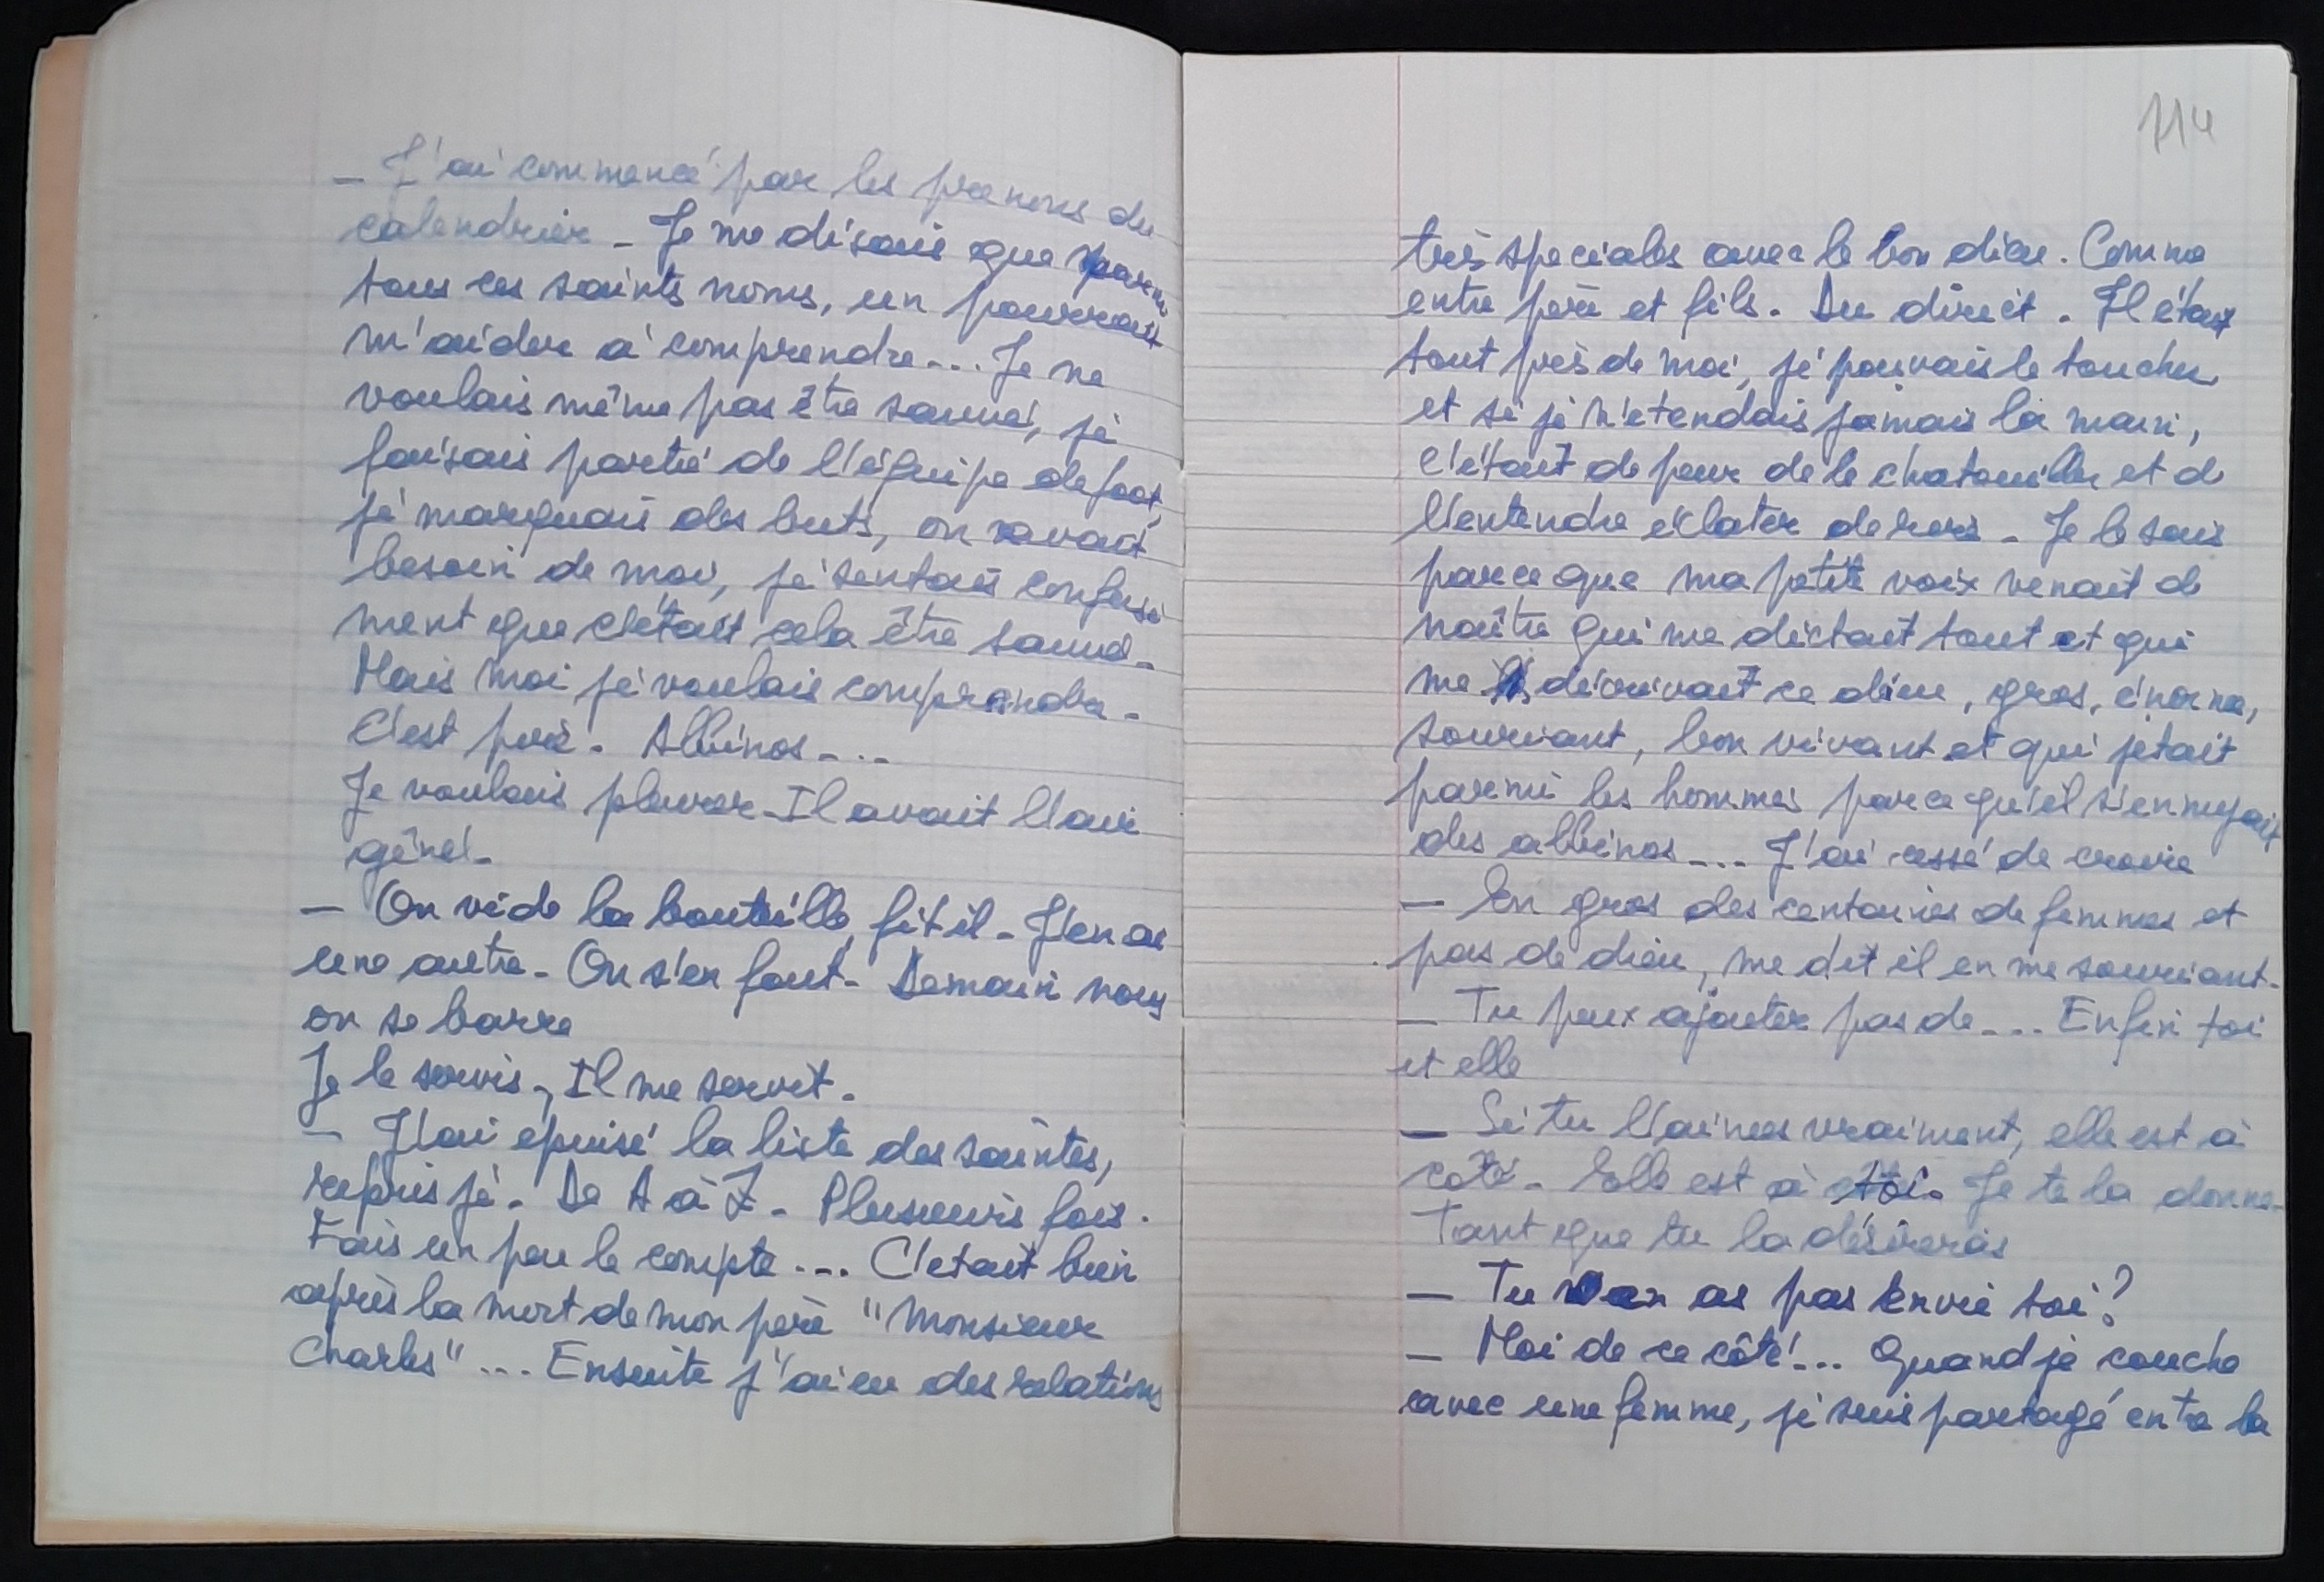 – J'ai commencé par les prenoms du
calendrier – Je me disais que parmi
tous ces saints noms, un pourrait
m'aider à comprendre... Je ne
voulais même pas être sauvé, je
faisais partie de l'équipe de foot,
je marquais des buts, on avait
besoin de moi, je sentais confusé
ment que c'était cela être sauvé –
Mais moi je voulais comprendre –
C'est pire. Albinos...
Je voulais pleurer – Il avait l'air
gêné –
– On vide la bouteille, fit il – J'en ai
une autre – On s'en fout – Demain nous
on se barre
Je le servis, Il me servit –
– J'ai épuisé la liste des saintes,
repris je – De A à Z – Plusieurs fois.
Fais un peu le compte... C'etait bien
après la mort de mon père "Monsieur
Charles"... Ensuite j'ai eu des relations
114
très speciales avec le bon dieu. Comme
entre père et fils. Du direct. Il était
tout près de moi, je pouvais le toucher
et si je n'etendais jamais la main,
c'était de peur de le chatouiller et de
l'entendre éclater de rire – Je le sais
parce que ma petite voix venait de
naître qui me dictait tout et qui
me décrivait ce dieu, gros, énorme,
souriant, bon vivant et qui jetait
parmi les hommes parce qu'il s'ennuyait
des albinos... J'ai cessé de croire
– En gros des centaines de femmes et
pas de dieu, me dit il en me souriant –
– Tu peux ajouter pas de... Enfin toi
et elle
– Si tu l'aimes vraiment, elle est à
coté – Elle est à toi. Je te la donne –
Tant que tu la désireras
– Tu en as pas envie toi ?
– Moi de ce côté !... Quand je couche
avec une femme, je suis partagé entre la